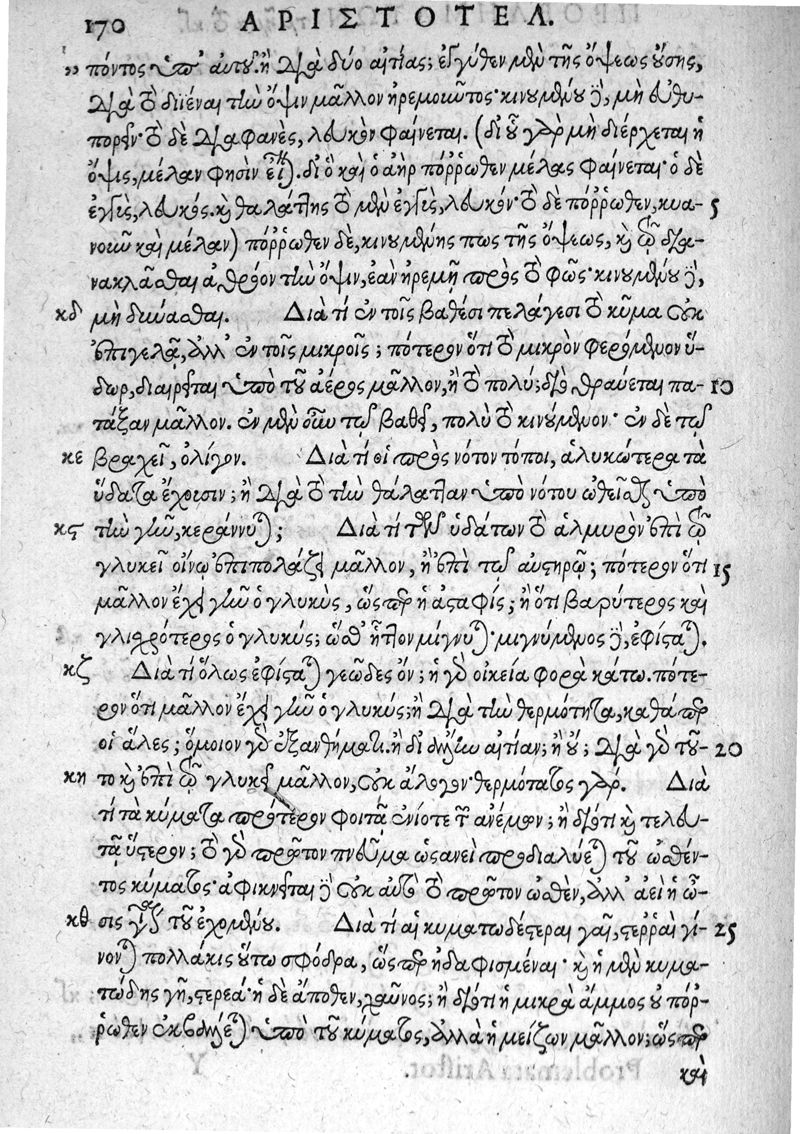 170 ΑΡΙΣΤΟΤΕΛ.
πόντος ὑπ' αὐτοῦ. ἢ διὰ δύο αἰτίας; ἐγγύθεν μὲν τῆς ὄψεως οὔσης,
διὰ τὸ διιέναι τὴν ὄψιν μᾶλλον ἠρεμοῦντος· κινουμένου δὲ, μὴ εὐθυ-
πορεῖν· τὸ δὲ διαφανὲς, λευκὸν φαίνεται. (δι' οὗ γὰρ μὴ διέρχεται ἡ
ὄψις, μέλαν φησὶν εἶναι). δι' ὃ καὶ ὁ ἀὴρ πόῤῥωθεν μέλας φαίνεται· ὁ δὲ
ἐγγὺς, λευκός. καὶ θαλάττης τὸ μὲν ἐγγὺς, λευκόν· τὸ δὲ πόῤῥωθεν, κυα- 5
νοῦν καὶ μέλαν) πόῤῥωθεν δὲ, κινουμένης πως τῆς ὄψεως, καὶ τῷ δια-
νακλᾶσθαι ἀθρόον τὴν ὄψιν, ἐὰν ἠρεμῇ πρὸς τὸ φῶς· κινουμένου δὲ,
κδ μὴ δύνασθαι. Διὰ τί ἐν τοῖς βαθέσι πελάγεσι τὸ κῦμα οὐκ
ἐπιγελᾷ, ἀλλ' ἐν τοῖς μικροῖς; πότερον ὅτι τὸ μικρὸν φερόμενον ὕ-
δωρ, διαιρεῖται ὑπὸ τοῦ ἀέρος μᾶλλον, ἢ τὸ πολύ; διὸ θραύεται πα- 10
τάξαν μᾶλλον. ἐν μὲν οὖν τῷ βαθεῖ, πολὺ τὸ κινούμενον· ἐν δὲ τῷ
κε βραχεῖ, ὀλίγον. Διὰ τί οἱ πρὸς νότον τόποι, ἁλυκώτερα τὰ
ὕδατα ἔχουσιν; ἢ διὰ τὸ τὴν θάλατταν ὑπὸ νότου ὠθεῖσθαι ὑπὸ
κϛ τὴν γῆν, κεράννυται; Διὰ τί τῶν ὑδάτων τὸ ἁλμυρὸν ἐπὶ τῷ
γλυκεῖ οἴνῳ ἐπιπολάζει μᾶλλον, ἢ ἐπὶ τῷ αὐστηρῷ; πότερον ὅτι 15
μᾶλλον ἔχει γῆν ὁ γλυκὺς, ὥσπερ ἡ ἀσταφίς; ἢ ὅτι βαρύτερος καὶ
γλισχρότερος ὁ γλυκύς; ὥσθ' ἧττον μίγνυται· μιγνύμενος δὲ, ἐφίσταται.
κζ Διὰ τί ὅλως ἐφίσταται γεῶδες ὄν; ἡ γὰρ οἰκεία φορὰ κάτω. πότε-
ρον ὅτι μᾶλλον ἔχει γῆν ὁ γλυκύς; ἢ διὰ τὴν θερμότητα, καθάπερ
οἱ ἅλες; ὅμοιον γὰρ ἐξανθήματι. ἢ δι' ἄλλην αἰτίαν; ἢ οὔ; διὰ γὰρ τοῦ- 20
κη το καὶ ἐπὶ τῷ γλυκεῖ μᾶλλον, οὐκ ἄλογον· θερμότατος γάρ. Διὰ
τί τὰ κύματα πρότερον φοιτᾷ ἐνίοτε τῶν ἀνέμων; ἢ διότι καὶ τελευ-
τᾷ ὕστερον; τὸ γὰρ πρῶτον πνεῦμα ὡσανεὶ προδιαλύεται τοῦ ὠσθέν-
τος κύματος· ἀφικνεῖται δὲ οὐκ αὐτὸ τὸ πρῶτον ὠσθὲν, ἀλλ' ἀεὶ ἡ ὦ-
κθ σις γίνεται τοῦ ἐχομένου. Διὰ τί αἱ κυματωδέστεραι γαῖ, στεῤῥαὶ γί- 25
νονται πολλάκις οὕτω σφόδρα, ὥσπερ ἠδαφισμέναι· καὶ ἡ μὲν κυμα-
τώδης γῆ, στερεά· ἡ δὲ ἄποθεν, χαῦνος; ἢ διότι ἡ μικρὰ ἄμμος οὐ πόῤ-
ῥωθεν ἐκβάλλεται ὑπὸ τοῦ κύματος, ἀλλὰ ἡ μείζων μᾶλλον; ὥσπερ
καὶ